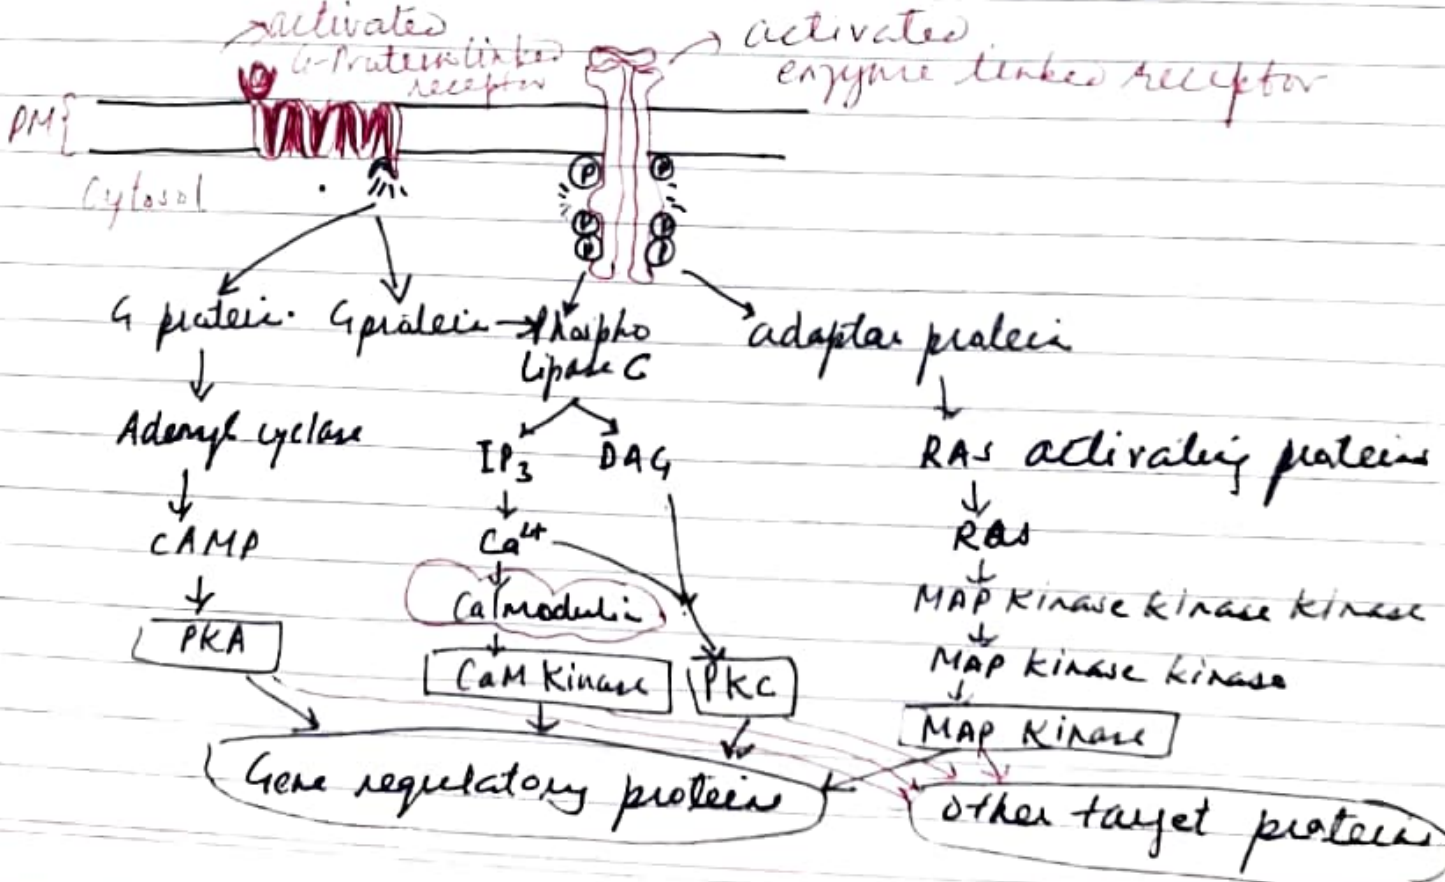 activated
G-Protein linked
receptor
activated
enzyme linked receptor
PM
Cytosol
P P
P P
P P
G protein. G protein → Phospho
lipase C
adaptor protein
Adenyl cyclase
IP3 DAG
RAS activating proteins
cAMP
Ca2+
RAS
Calmodulin
MAP kinase kinase kinase
PKA
CaM kinase
PKC
MAP kinase kinase
MAP kinase
Gene regulatory proteins
other target proteins